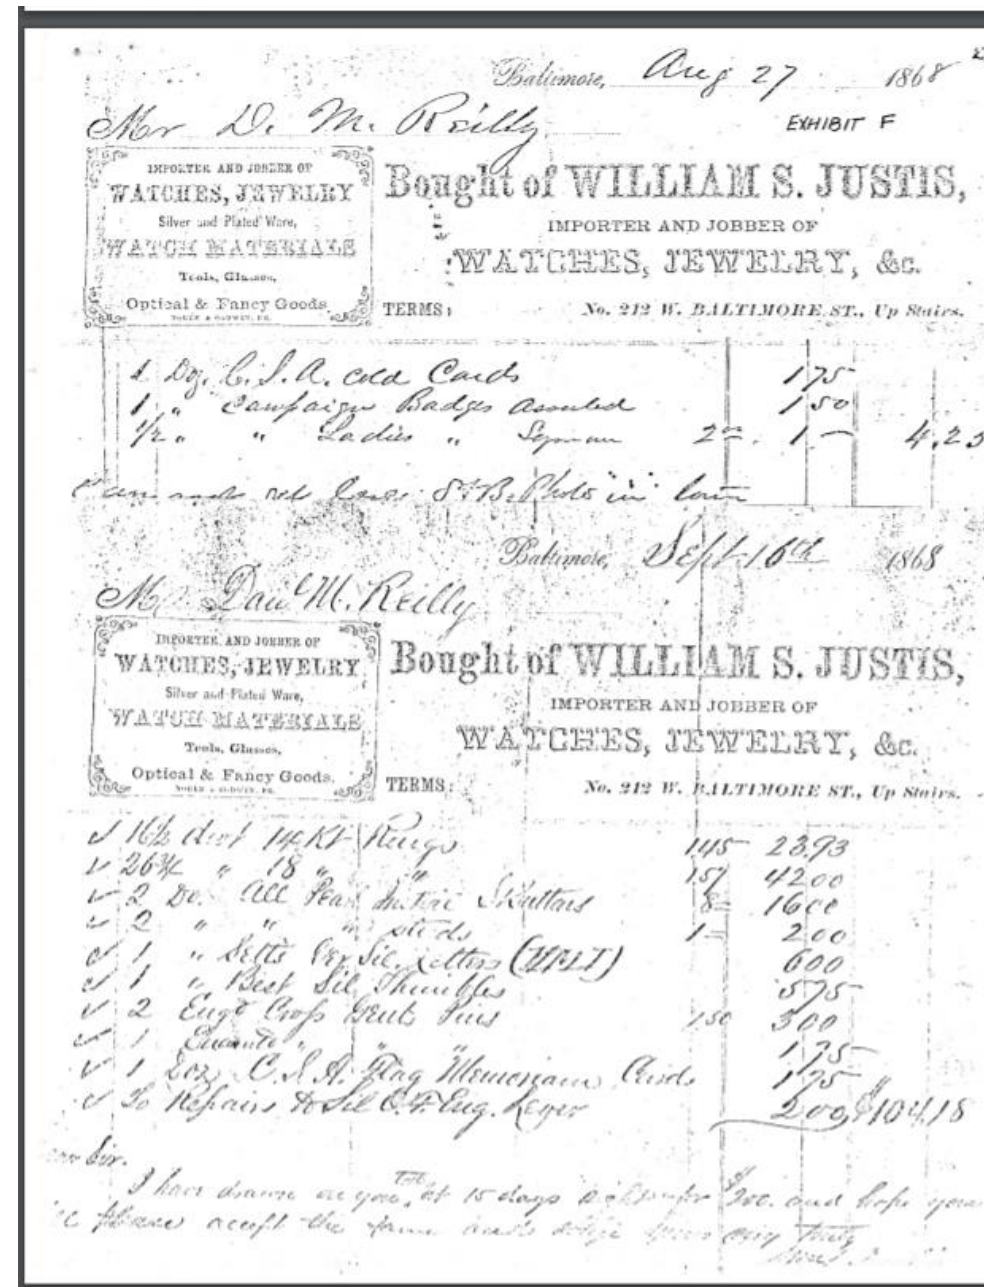 Baltimore, Aug 27 1868
EXHIBIT F
Mr D. M. Reilly
IMPORTER AND JOBBER OF
WATCHES, JEWELRY
Silver and Plated Ware,
WATCH MATERIALS
Tools, Glasses,
Optical & Fancy Goods
Bought of WILLIAM S. JUSTIS,
IMPORTER AND JOBBER OF
WATCHES, JEWELRY, &c.
TERMS: No. 212 W. BALTIMORE ST., Up Stairs.
1 Doz. C.S.A. Cards 1 75
1 " Campaign Badges assorted 1 50
1/2 " " Ladies " 2 1 4.25
Can not Photo "in"
Baltimore, Sept 16th 1868
M. Reilly
IMPORTER AND JOBBER OF
WATCHES, JEWELRY
Silver and Plated Ware,
WATCH MATERIALS
Tools, Glasses,
Optical & Fancy Goods.
Bought of WILLIAM S. JUSTIS,
IMPORTER AND JOBBER OF
WATCHES, JEWELRY, &c.
TERMS: No. 212 W. BALTIMORE ST., Up Stairs.
16 1/2 dwt 14 Kt Rings 145 23.93
26 3/4 " 18 " " 157 42 00
2 Do. All Pearl S Buttons 8 16 00
2 " " " studs 1 2 00
1 " Setts Sil. Letters 6 00
1 " Best Sil Thimbles 5 75
2 Engd Cross Pins 1.50 3 00
1 " " 1.75
1 Doz C.S.A. Flag Memoriam Cards 1 75
To Repairs to Sil Eng. 2 00 $104.18
Sir.
I have drawn on you at 15 days for $200. and hope you
please accept the same and yours very truly